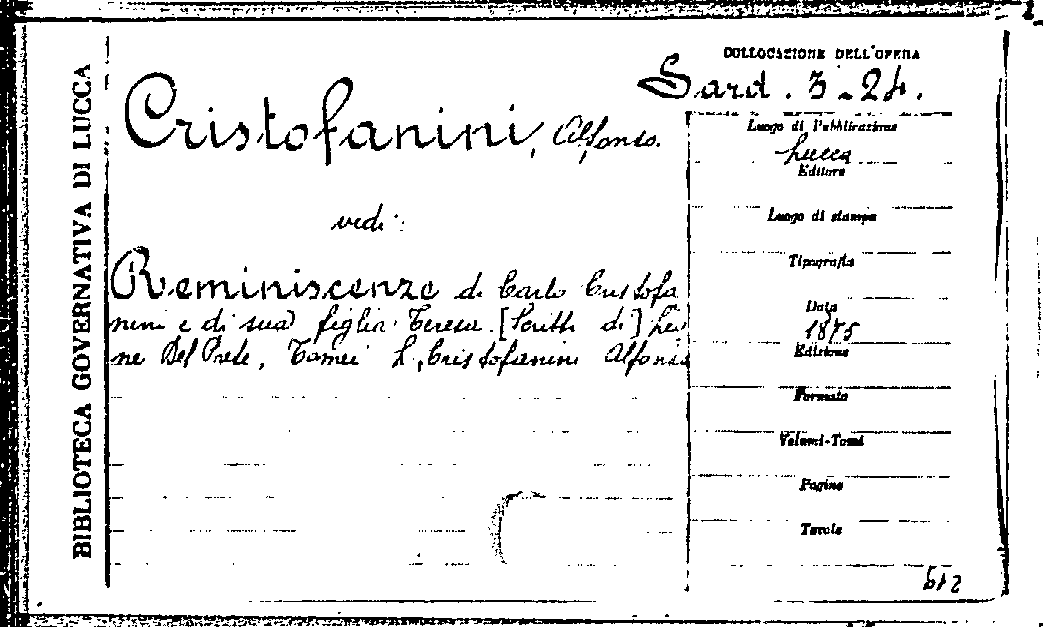 BIBLIOTECA GOVERNATIVA DI LUCCA
COLLOCAZIONE DELL'OPERA
Sard. 3-24.
Cristofanini, Alfonso.
vedi:
Reminiscenze di Carlo Cristofa
nini e di sua figlia Teresa. [Scritti di]
ne Del Prete, Tomei L., Cristofanini Alfonso
Luogo di Pubblicazione
Lucca
Editore
Luogo di stampa
Tipografia
Data
1875
Edizione
Formato
Volumi-Tomi
Pagine
Tavole